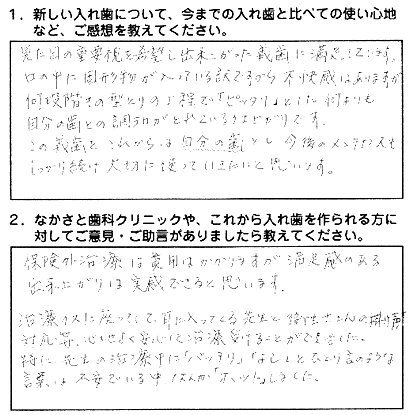 1．新しい入れ歯について、今までの入れ歯と比べての使い心地
など、ご感想を教えてください。
見た目の重要視を希望し出来上がった義歯に満足しています。
口の中に固形物が入っている訳ですから不快感はありますが
何段階もの型とりの工程で「ピッタリ」とした何よりも
自分の歯との調和がとれている仕上がりです。
この義歯とこれからは自分の歯とし今後のメンテナンスも
しっかり続け大切に使っていきたいと思います。
2．なかさと歯科クリニックや、これから入れ歯を作られる方に
対してご意見・ご助言がありましたら教えてください。
保険外治療は費用はかかりますが満足感のある
出来上がりは実感できると思います。
治療イスに座っていて、耳に入ってくる先生と衛生士さんの
対応等、心地よく安心して治療受けることができました。
特に先生の治療中に「バッチリ」「よし」とひとり言のような
言葉は不安でいる中 なんか「ホッ」としました。